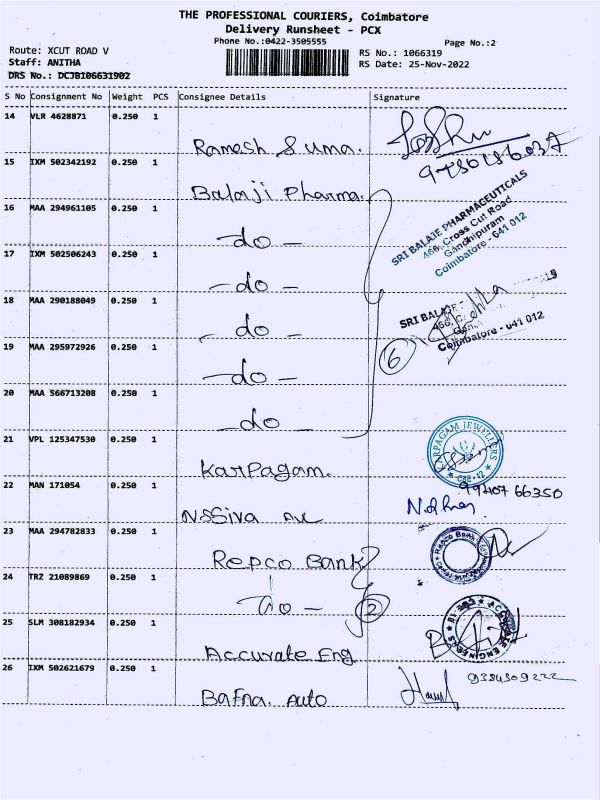 THE PROFESSIONAL COURIERS, Coimbatore
Delivery Runsheet - PCX
Phone No.:0422-3505555
Page No.:2
Route: XCUT ROAD V
RS No.: 1066319
Staff: ANITHA
RS Date: 25-Nov-2022
DRS No.: DCJB106631902
S No Consignment No Weight PCS Consignee Details Signature
14 VLR 4628871 0.250 1
Ramesh Suma.
15 IXM 502342192 0.250 1
Balaji Pharma.
SRI BALAJE PHARMACEUTICALS
466, Cross Cut Road
Gandhipuram
Coimbatore - 641 012
16 MAA 294961105 0.250 1
- do -
17 IXM 502506243 0.250 1
- do -
18 MAA 290188049 0.250 1
- do -
SRI BALAJE
Coimbatore - 641 012
19 MAA 295972926 0.250 1
- do -
6
20 MAA 566713208 0.250 1
- do -
21 VPL 125347530 0.250 1
KarPagam.
KARPAGAM JEWELLERS
CBE-12
22 MAN 171054 0.250 1
99407 66350
NSSiva
23 MAA 294782833 0.250 1
Repco Bank
Repco Bank
24 TRZ 21089869 0.250 1
- do -
2
25 SLM 308182934 0.250 1
Accurate Eng
26 IXM 502621679 0.250 1
9384309222
Bafna. Auto